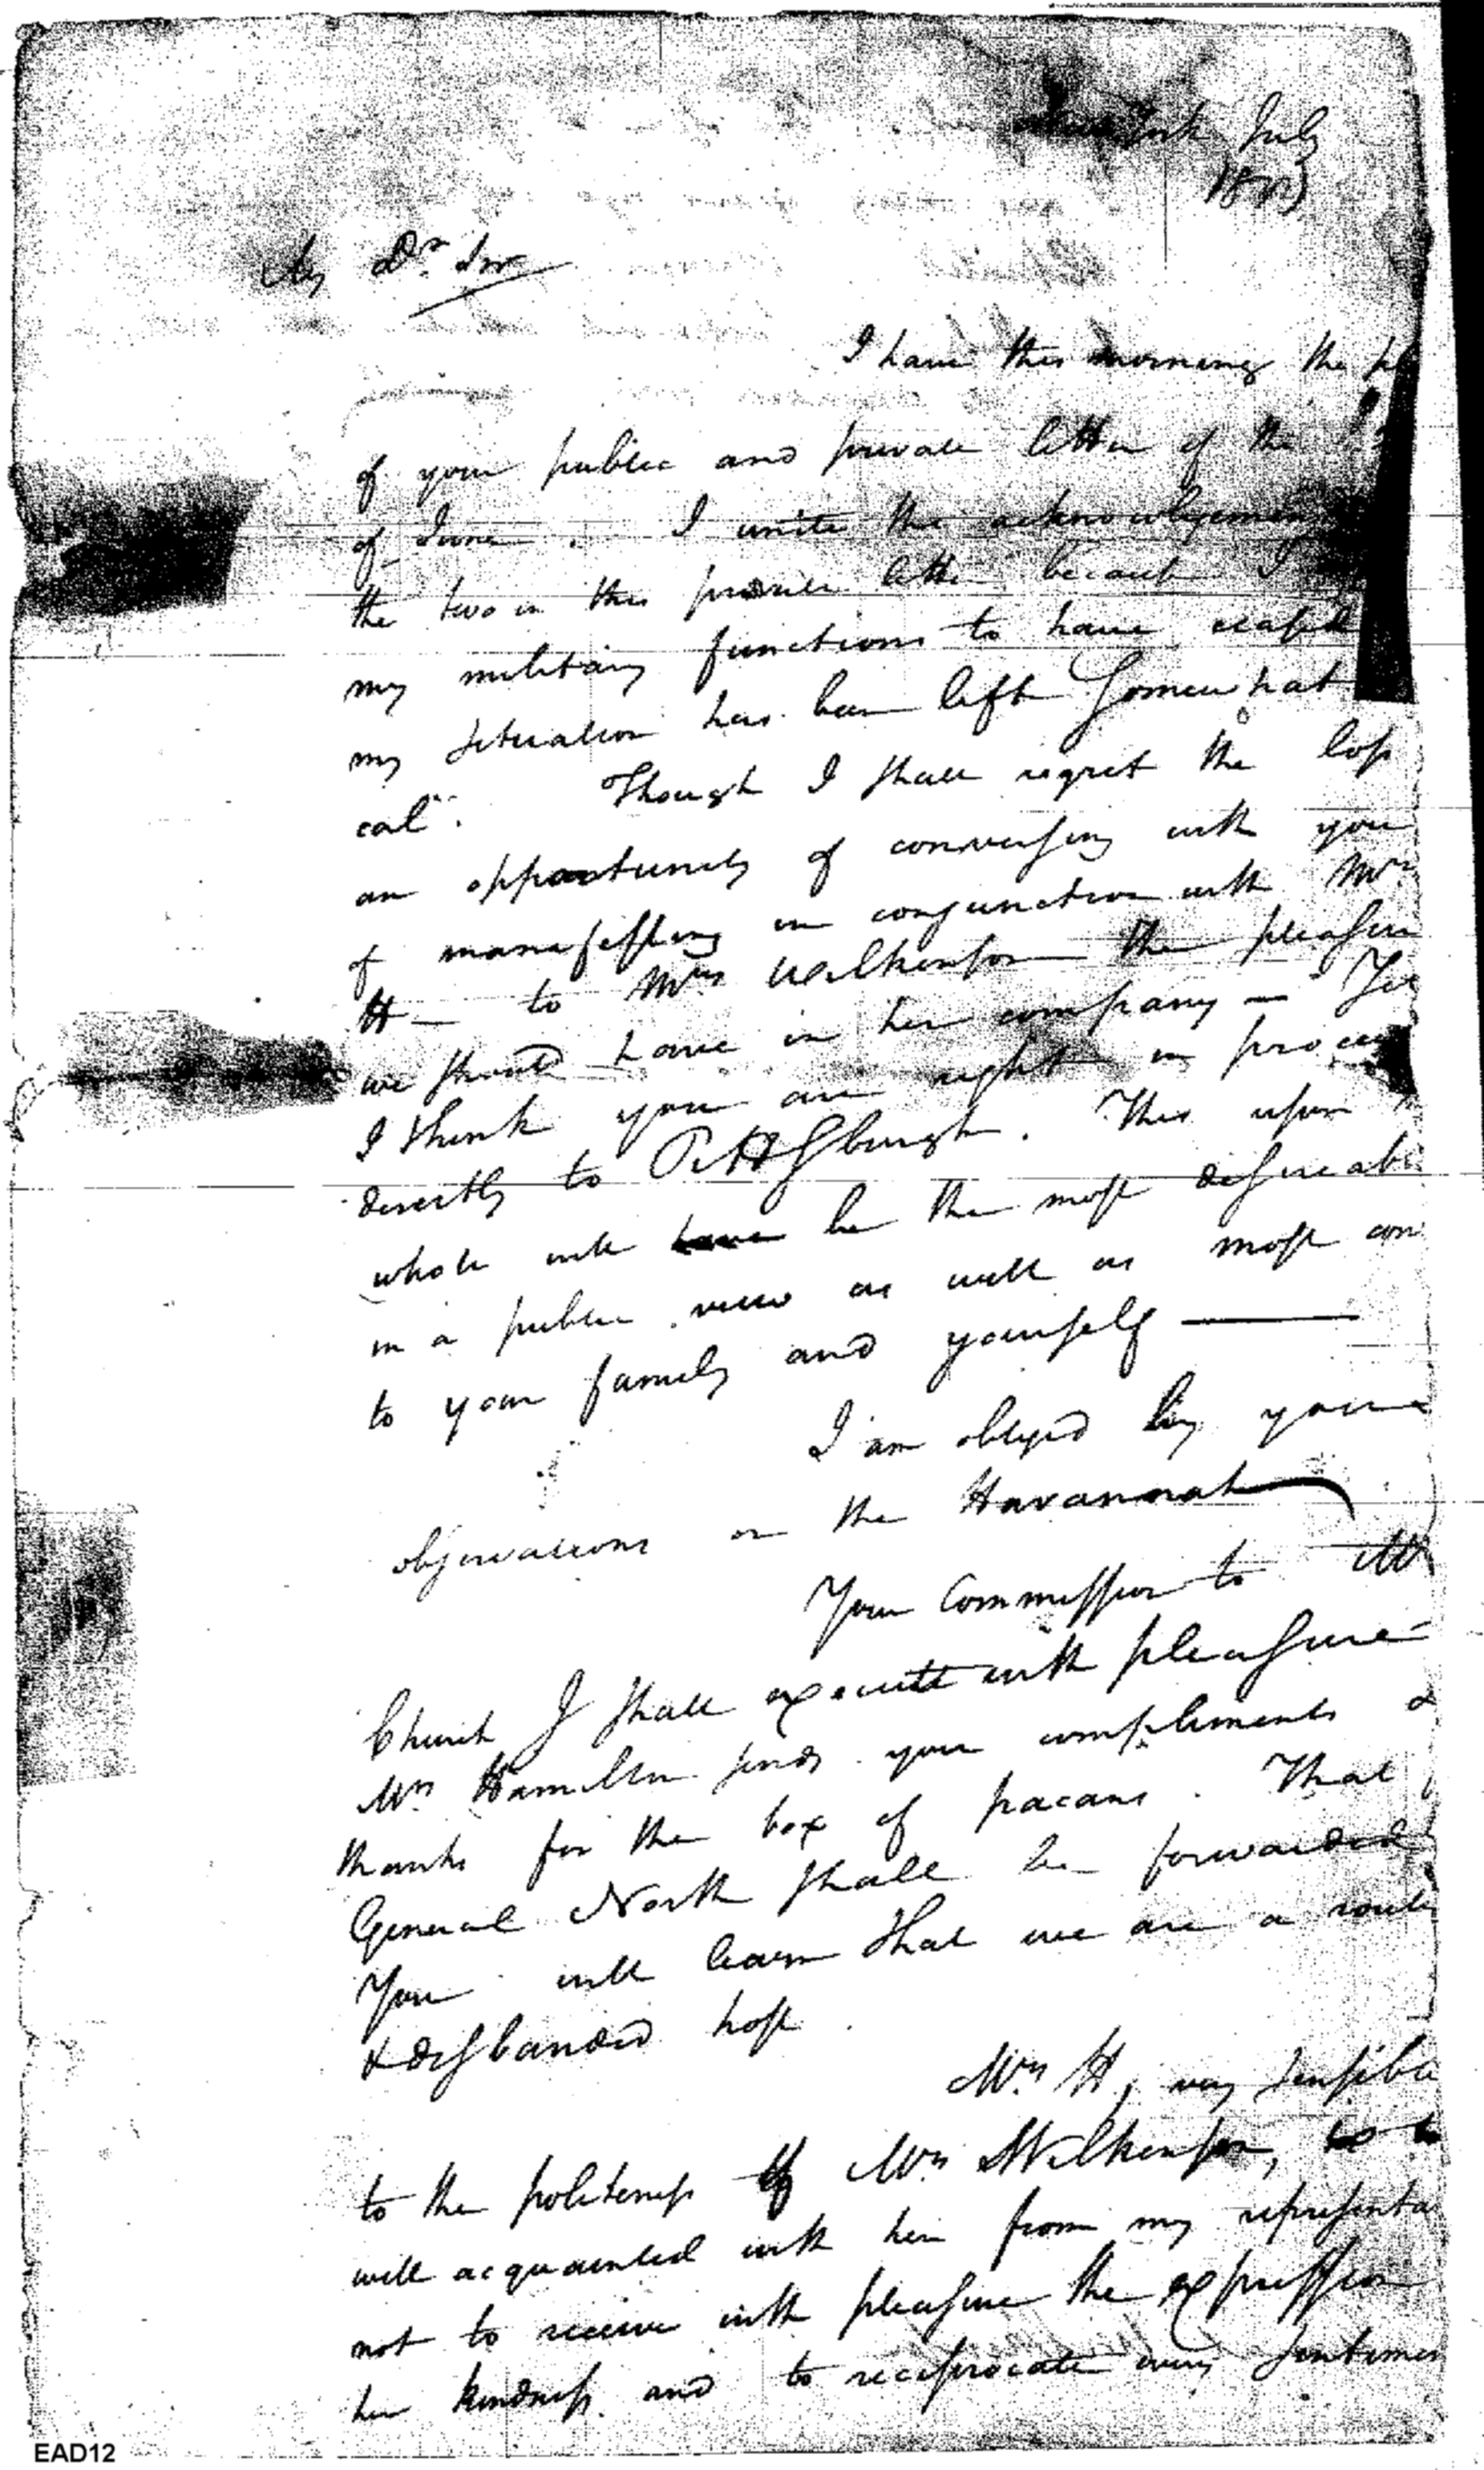 York July
My Dr. Sir
I have this morning the
of your public and private letter of the
of June. I unite the acknowlegement
the two in this private letter because I
my military functions to have ceased
my situation has been left somewhat
cal".  Though I shall regret the loss
an opportunity of conversing with you
of manifesting in conjunction with Mrs.
H— to Mrs Wilkenson the pleasure
we should have in her company — Yet
I think you are right in
directly to Pittsburgh. This upon
whole will be the most desireable
in a public view as well as most con
to your family and yourself —
I am obliged by your
observations on the Havannah
Your Commission to Mr
Church I shall execute with pleasure
Mrs. Hamilton sends you compliments &
thanks for the box of pacans. That
General North shall be forwarded
You will learn that we are a
& disbanded host.
Mrs. H, very sensible
to the politeness of Mrs. Wilkenson, is to
well acquainted with her from my representa
not to receive with pleasure the expression
her kindness and to reciprocate every sentimen
EAD12